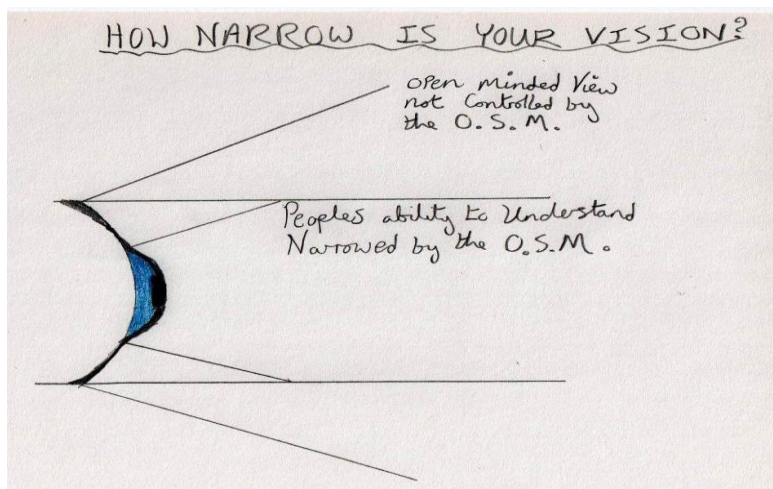 HOW NARROW IS YOUR VISION?
Open Minded View
not Controlled by
the O.S.M.
Peoples ability to Understand
Narrowed by the O.S.M.